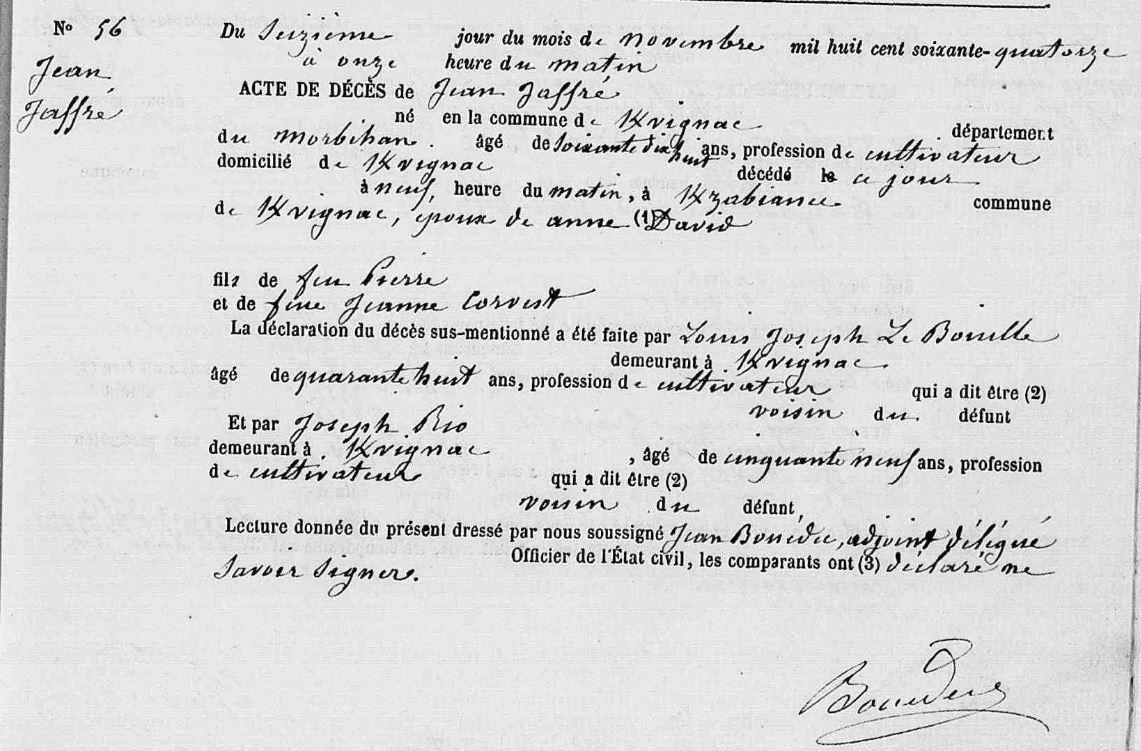 No 56
Jean
Jaffré
Du Seizième jour du mois de novembre mil huit cent soixante-quatorze
à onze heure du matin
ACTE DE DÉCÈS de Jean Jaffré
né en la commune de Kvignac département
du morbihan. âgé de soixante dix huit ans, profession de cultivateur
domicilié de Kvignac décédé le ce jour
à neuf heure du matin, à Kzabiance commune
de Kvignac, époux de anne (1) David
fils de feu Pierre
et de feue Jeanne Corvest
La déclaration du décès sus-mentionné a été faite par Louis Joseph Le Bouille
demeurant à Kvignac
âgé de quarante huit ans, profession de cultivateur qui a dit être (2)
voisin du défunt
Et par Joseph Rio
demeurant à Kvignac, âgé de cinquante neuf ans, profession
de cultivateur qui a dit être (2)
voisin du défunt,
Lecture donnée du présent dressé par nous soussigné Jean Bouedec, adjoint délégué
Officier de l'État civil, les comparants ont (3) déclaré ne
Savoir Signer.